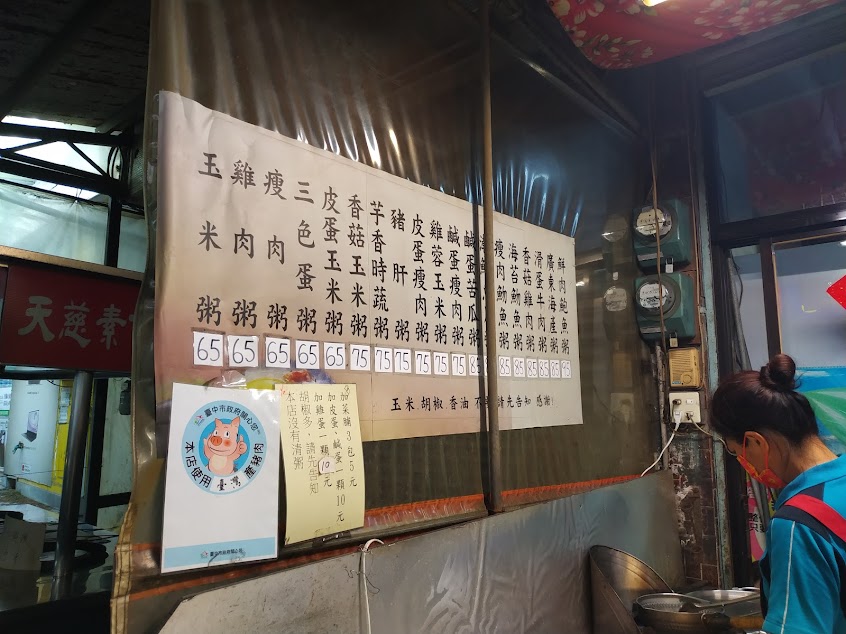 玉米粥 65
雞肉粥 65
瘦肉粥 65
三色蛋粥 65
皮蛋玉米粥 65
香菇玉米粥 75
芋香時蔬粥 75
豬肝粥 75
皮蛋瘦肉粥 75
雞蓉玉米粥 75
鹹蛋瘦肉粥 75
鹹蛋苦瓜粥
瘦肉魩魚粥 85
海苔魩魚粥 85
香菇雞肉粥 85
滑蛋牛肉粥 85
廣東海產粥 85
鮮肉鮑魚粥
玉米 胡椒 香油 不 請先告知 感謝!
菜脯3包5元
加皮蛋、鹹蛋一顆10元
加雞蛋一顆10元
胡椒多,請先告知
本店沒有清粥
臺中市政府關心您
本店使用臺灣豬肉
臺中市政府關心您
天慈素